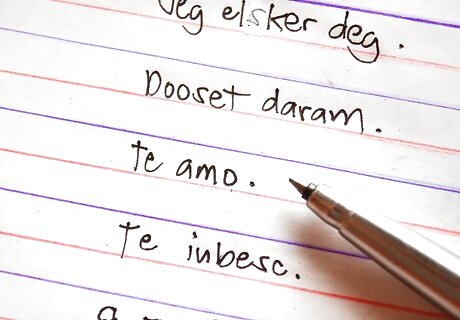 Jeg elsker deg.
Dooset daram.
Te amo.
Te iubesc.